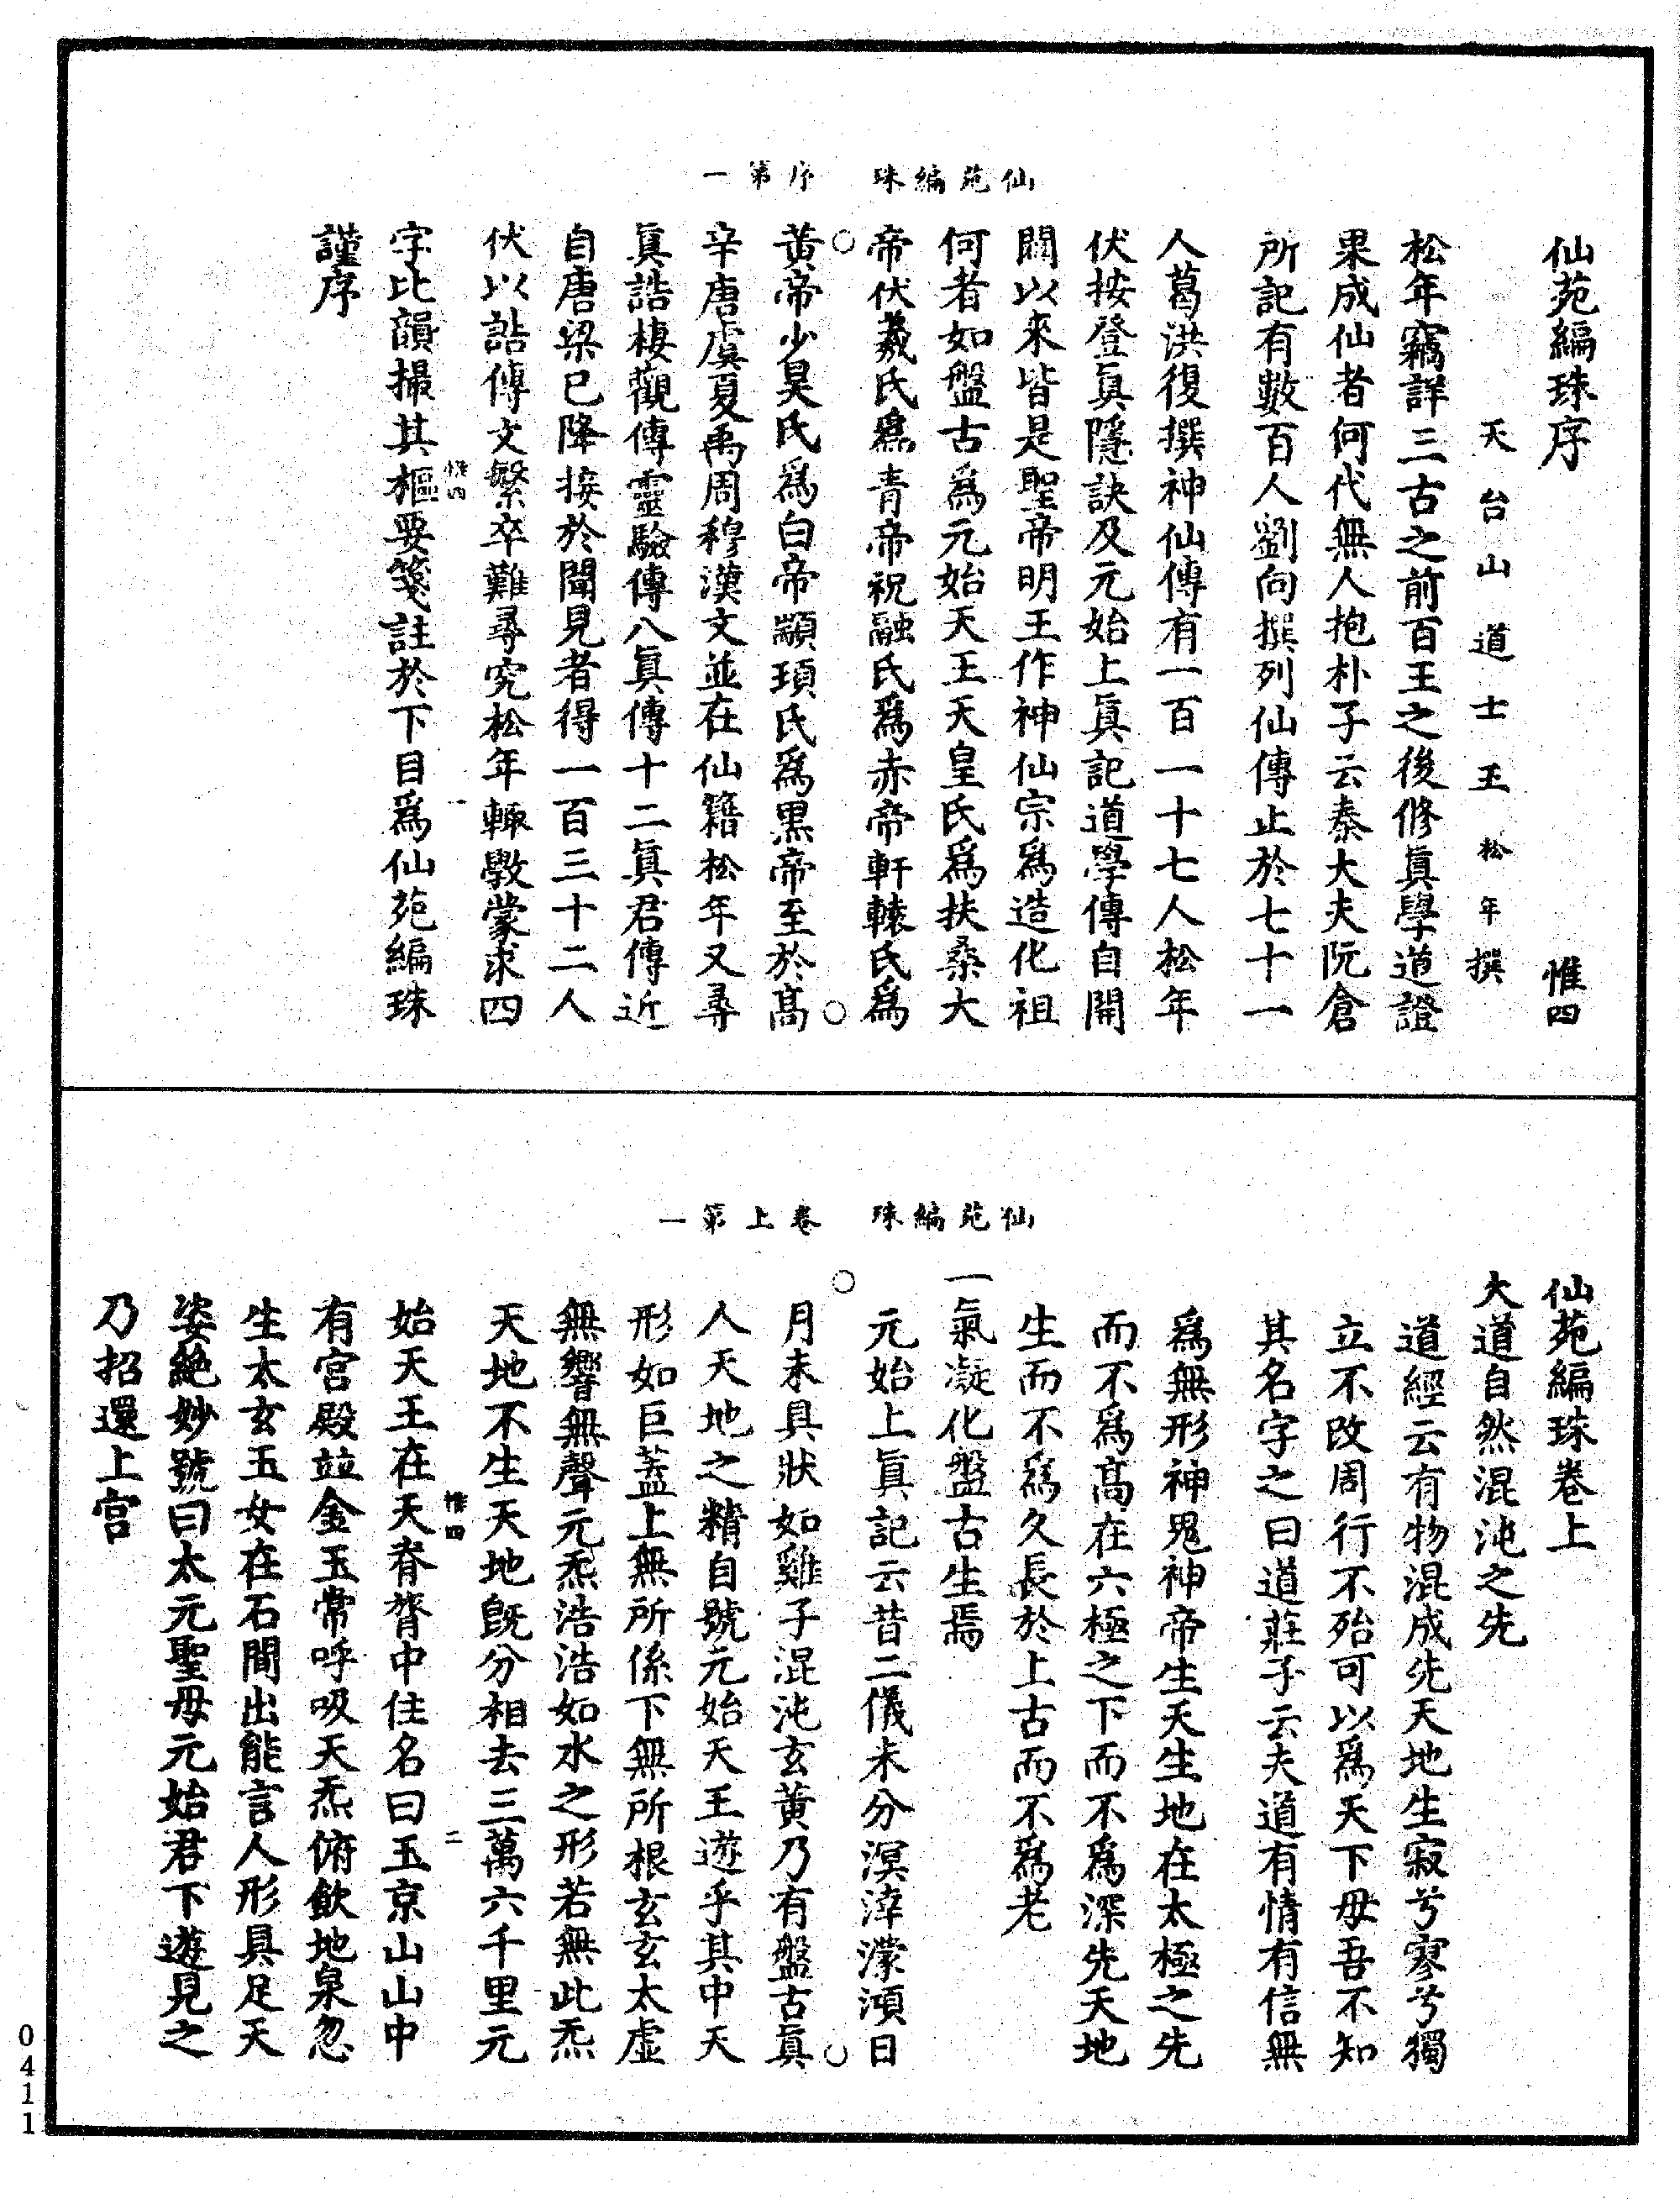 仙苑編珠　序第一
仙苑編珠序　惟四
天台山道士王松年撰
松年竊詳三古之前百王之後修眞學道證
果成仙者何代無人抱朴子云秦大夫阮倉
所記有數百人劉向撰列仙傳止於七十一
人葛洪復撰神仙傳有一百一十七人松年
伏按登眞隱訣及元始上眞記道學傳自開
闢以來皆是聖帝明王作神仙宗爲造化祖
何者如盤古爲元始天王天皇氏爲扶桑大
帝伏羲氏爲青帝祝融氏爲赤帝軒轅氏爲
黃帝少昊氏爲白帝顓頊氏爲黑帝至於高
辛唐虞夏禹周穆漢文並在仙籍松年又尋
眞誥樓觀傳靈驗傳八眞傳十二眞君傳近
自唐梁已降接於聞見者得一百三十二人
伏以誥傳文繁卒難尋究松年輒斅蒙求四
惟四　一
字比韻撮其樞要箋註於下目爲仙苑編珠
謹序
仙苑編珠　卷上第一
仙苑編珠卷上
大道自然混沌之先
道經云有物混成先天地生寂兮寥兮獨
立不改周行不殆可以爲天下母吾不知
其名字之曰道莊子云夫道有情有信無
爲無形神鬼神帝生天生地在太極之先
而不爲高在六極之下而不爲深先天地
生而不爲久長於上古而不爲老
一氣凝化盤古生焉
元始上眞記云昔二儀未分溟涬濛澒日
月未具狀如雞子混沌玄黃乃有盤古眞
人天地之精自號元始天王遊乎其中天
形如巨蓋上無所係下無所根玄玄太虛
無響無聲元炁浩浩如水之形若無此炁
天地不生天地旣分相去三萬六千里元
惟四　二
始天王在天脊膂中住名曰玉京山山中
有宮殿並金玉常呼吸天炁俯飲地泉忽
生太玄玉女在石間出能言人形具足天
姿絕妙號曰太元聖母元始君下遊見之
乃招還上宮
0411